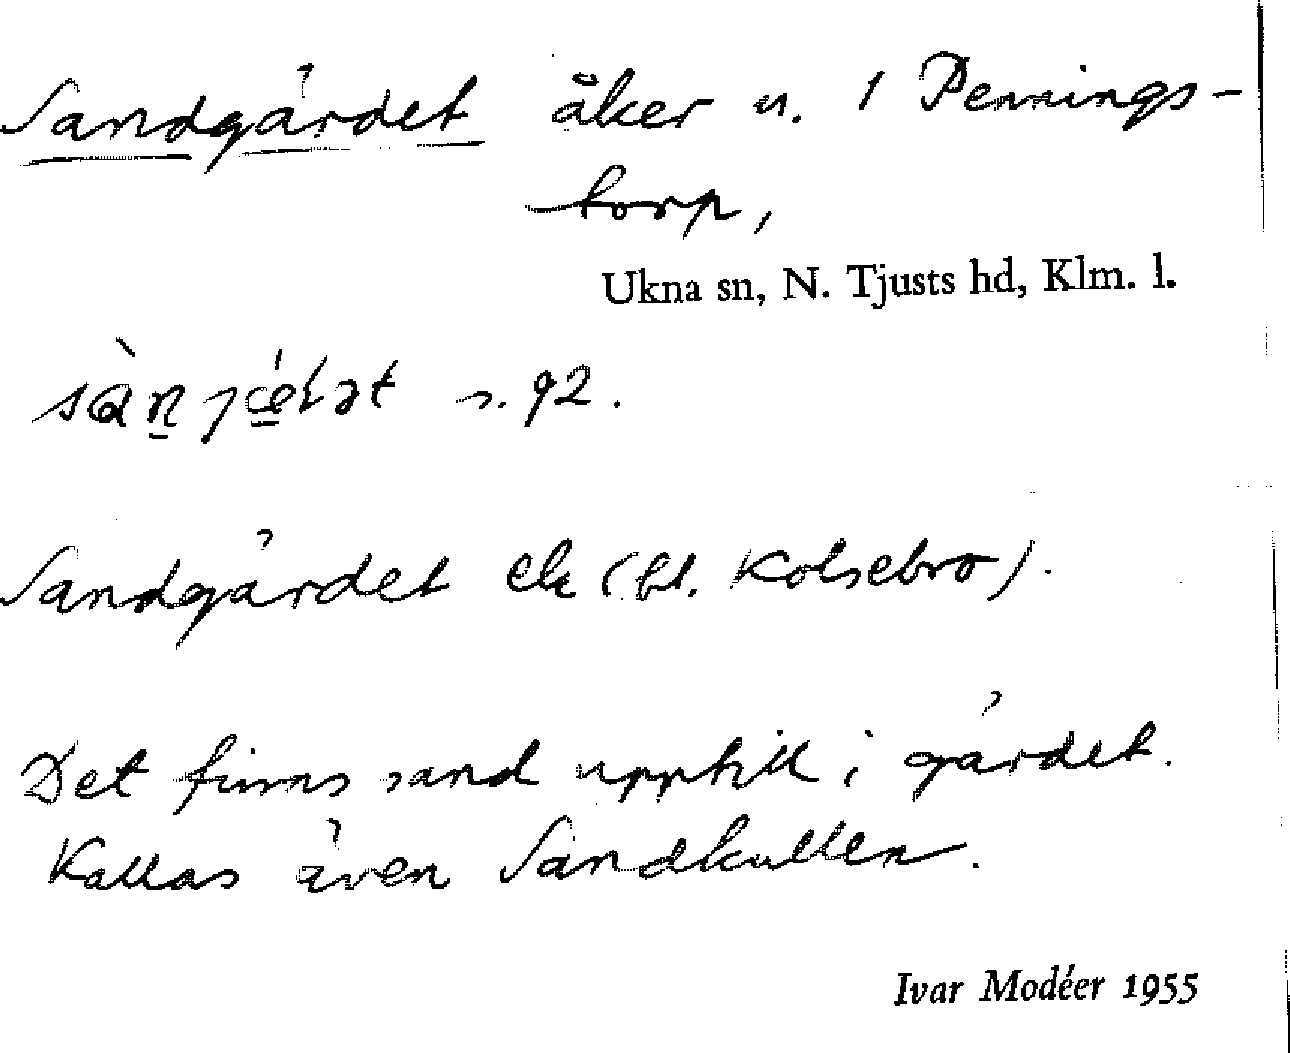 Sandgärdet åker u. 1 Pennings-
torp,
Ukna sn, N. Tjusts hd, Klm. l.
s. 92.
Sandgärdet ek (bl. Kolsebro).
Det finns sand upptill i gärdet.
Kallas även Sandkullen.
Ivar Modéer 1955